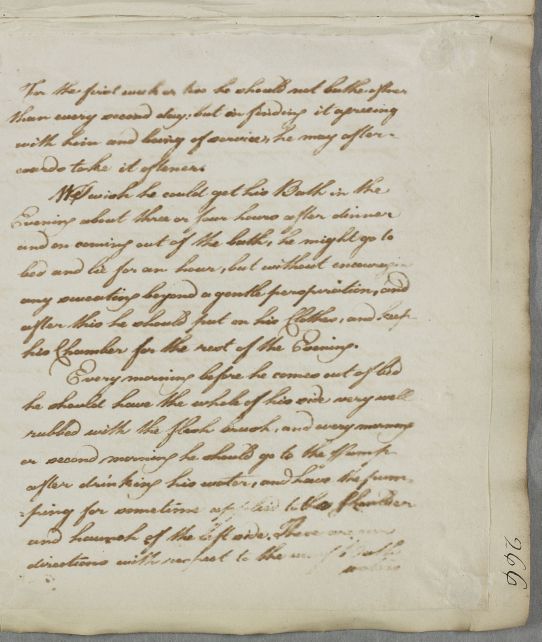 For the first week or two he should not bathe oftner
than every second day; but on finding it agreeing
with him and being of service, he may after-
wards take it oftener.
We wish he could get his Bath in the
Evening about three or four hours after dinner
and on coming out of the bath, he might go to
bed and lie for an hour, but without encouraging
any sweating beyond a gentle perspiration, and
after this he should put on his Clothes, and keep
his Chamber for the rest of the Evening.
Every morning before he comes out of bed
he should have the whole of his side very well
rubbed with the flesh brush, and every morning
or second morning he should go to the Pump
after drinking his water, and have the pum-
-ping for sometime applied to the Shoulder
and haunch of the left side. These are our
directions with respect to the use of Bath
waters
266